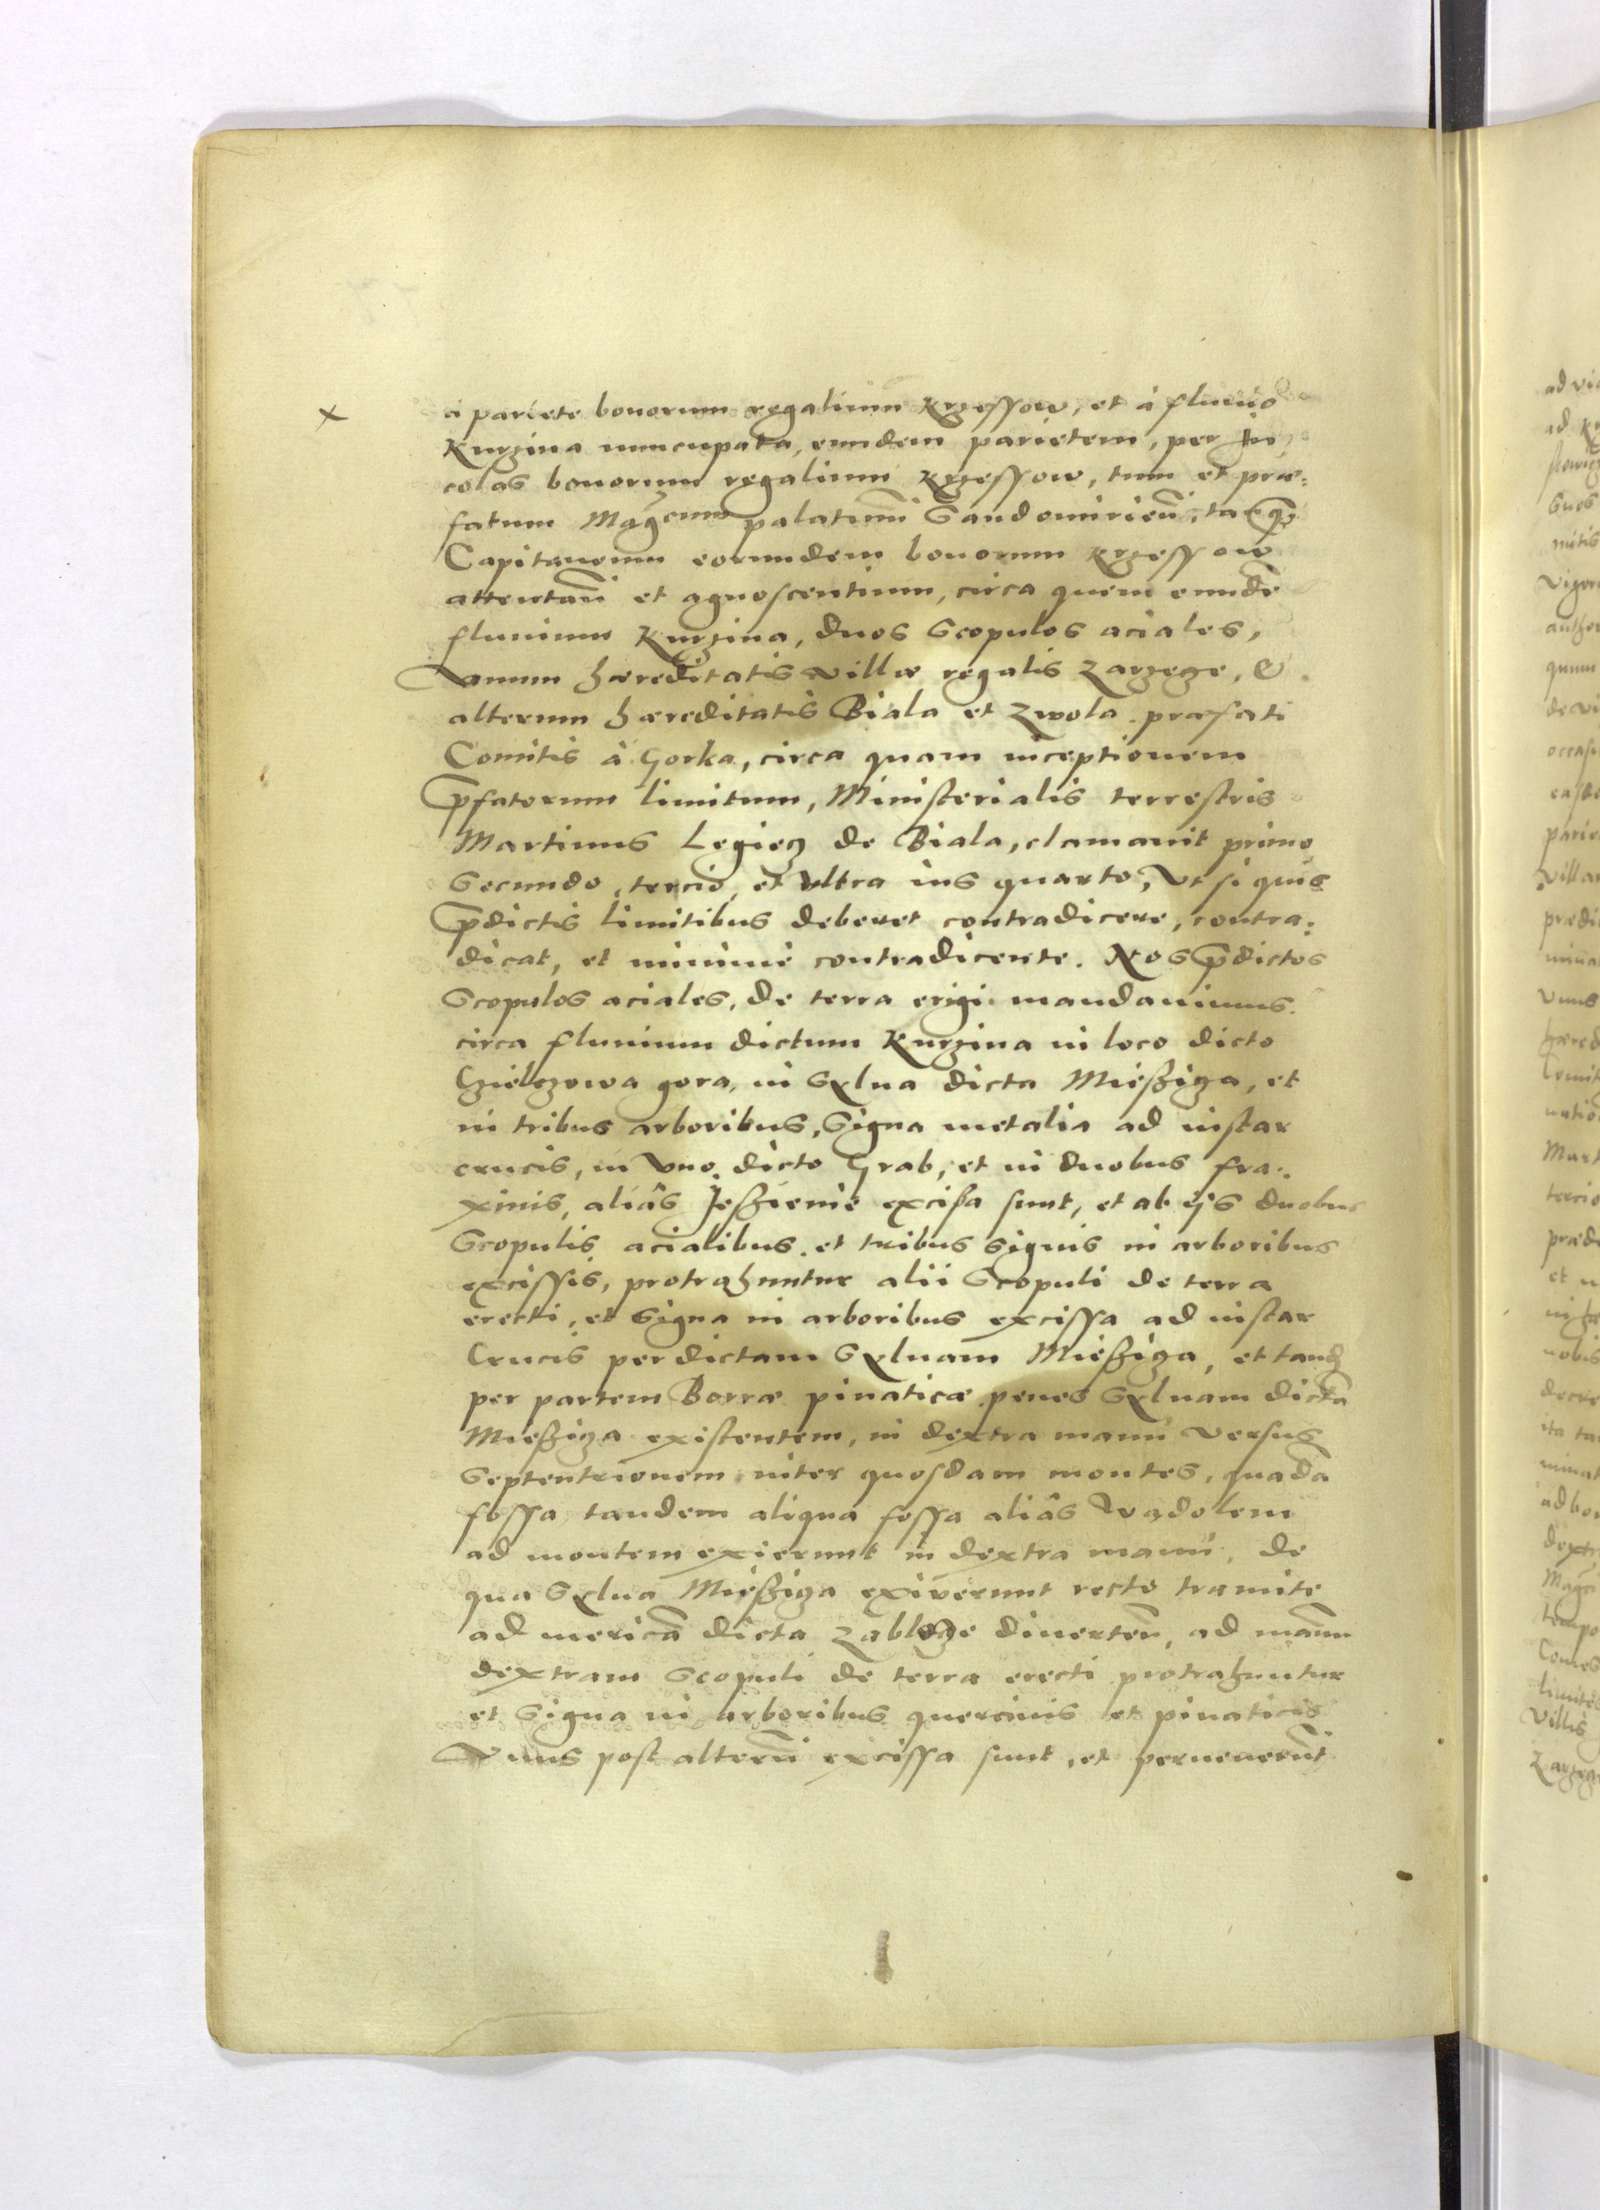 à pariete bonorum regalium Krzessow, et à fluuio
Kurzina nuncupata, eundem parietem, per In,
colas bonorum regalium Krzessow, tum et præ:
fatum Mag͡cum palatinū Sandomirien̄, tanq̄
Capitaneum eorundem bonorum Krzessow
attentan̄ et agnoscentium, circa quem eundē
fluuium Kurzina, duos Scopulos aciales,
Vnum hæreditatis villæ regalis Zarzege, &
alterum hæreditatis Biala et Zwola præfati
Comitis à Gorka, circa quam inceptionem
p̄fatorum limitum, Ministerialis terrestris
Martinus Legiecz de Biala, clamauit primo
Secundo, tercio, et vltra ius quarto, Vt si quis
p̄dictis limitibus deberet contradicere, contra:
dicat, et minime contradicente. Nos p̄dictos
Scopulos aciales, de terra erigi mandauimus.
circa fluuium dictum Kurzina in loco dicto
Czielczowa gora, in Sylua dicta Mießiga, et
in tribus arboribus, Signa metalia ad instar
crucis, in Vno dicto Grab, et in duobus fra:
xinis, aliâs Jeßienie excisa sunt, et ab ijs duobus
Scopulis acialibus et tribus signis in arboribus
excissis, protrahuntur alii Scopuli de terra
erecti, et Signa in arboribus excissa ad instar
Crucis per dictam Syluam Mießiga, et tand
per partem Borræ pinaticæ penes Syluam dictā
Mießiga existentem, in dextra manu versus
Septentrionem inter quosdam montes, quadā
fossa tandem aliqua fossa aliâs Wądolem
ad montem exierunt in dextra manu, de
qua Sylua Mießiga exiverunt recto tramite
ad mericā dicta Zablocze diuerten̄, ad manū
dextram Scopuli de terra erecti protrahuntur
et Signa in arboribus quercinis et pinaticis
Vnus post alterū excissa sunt, et peruenerūt